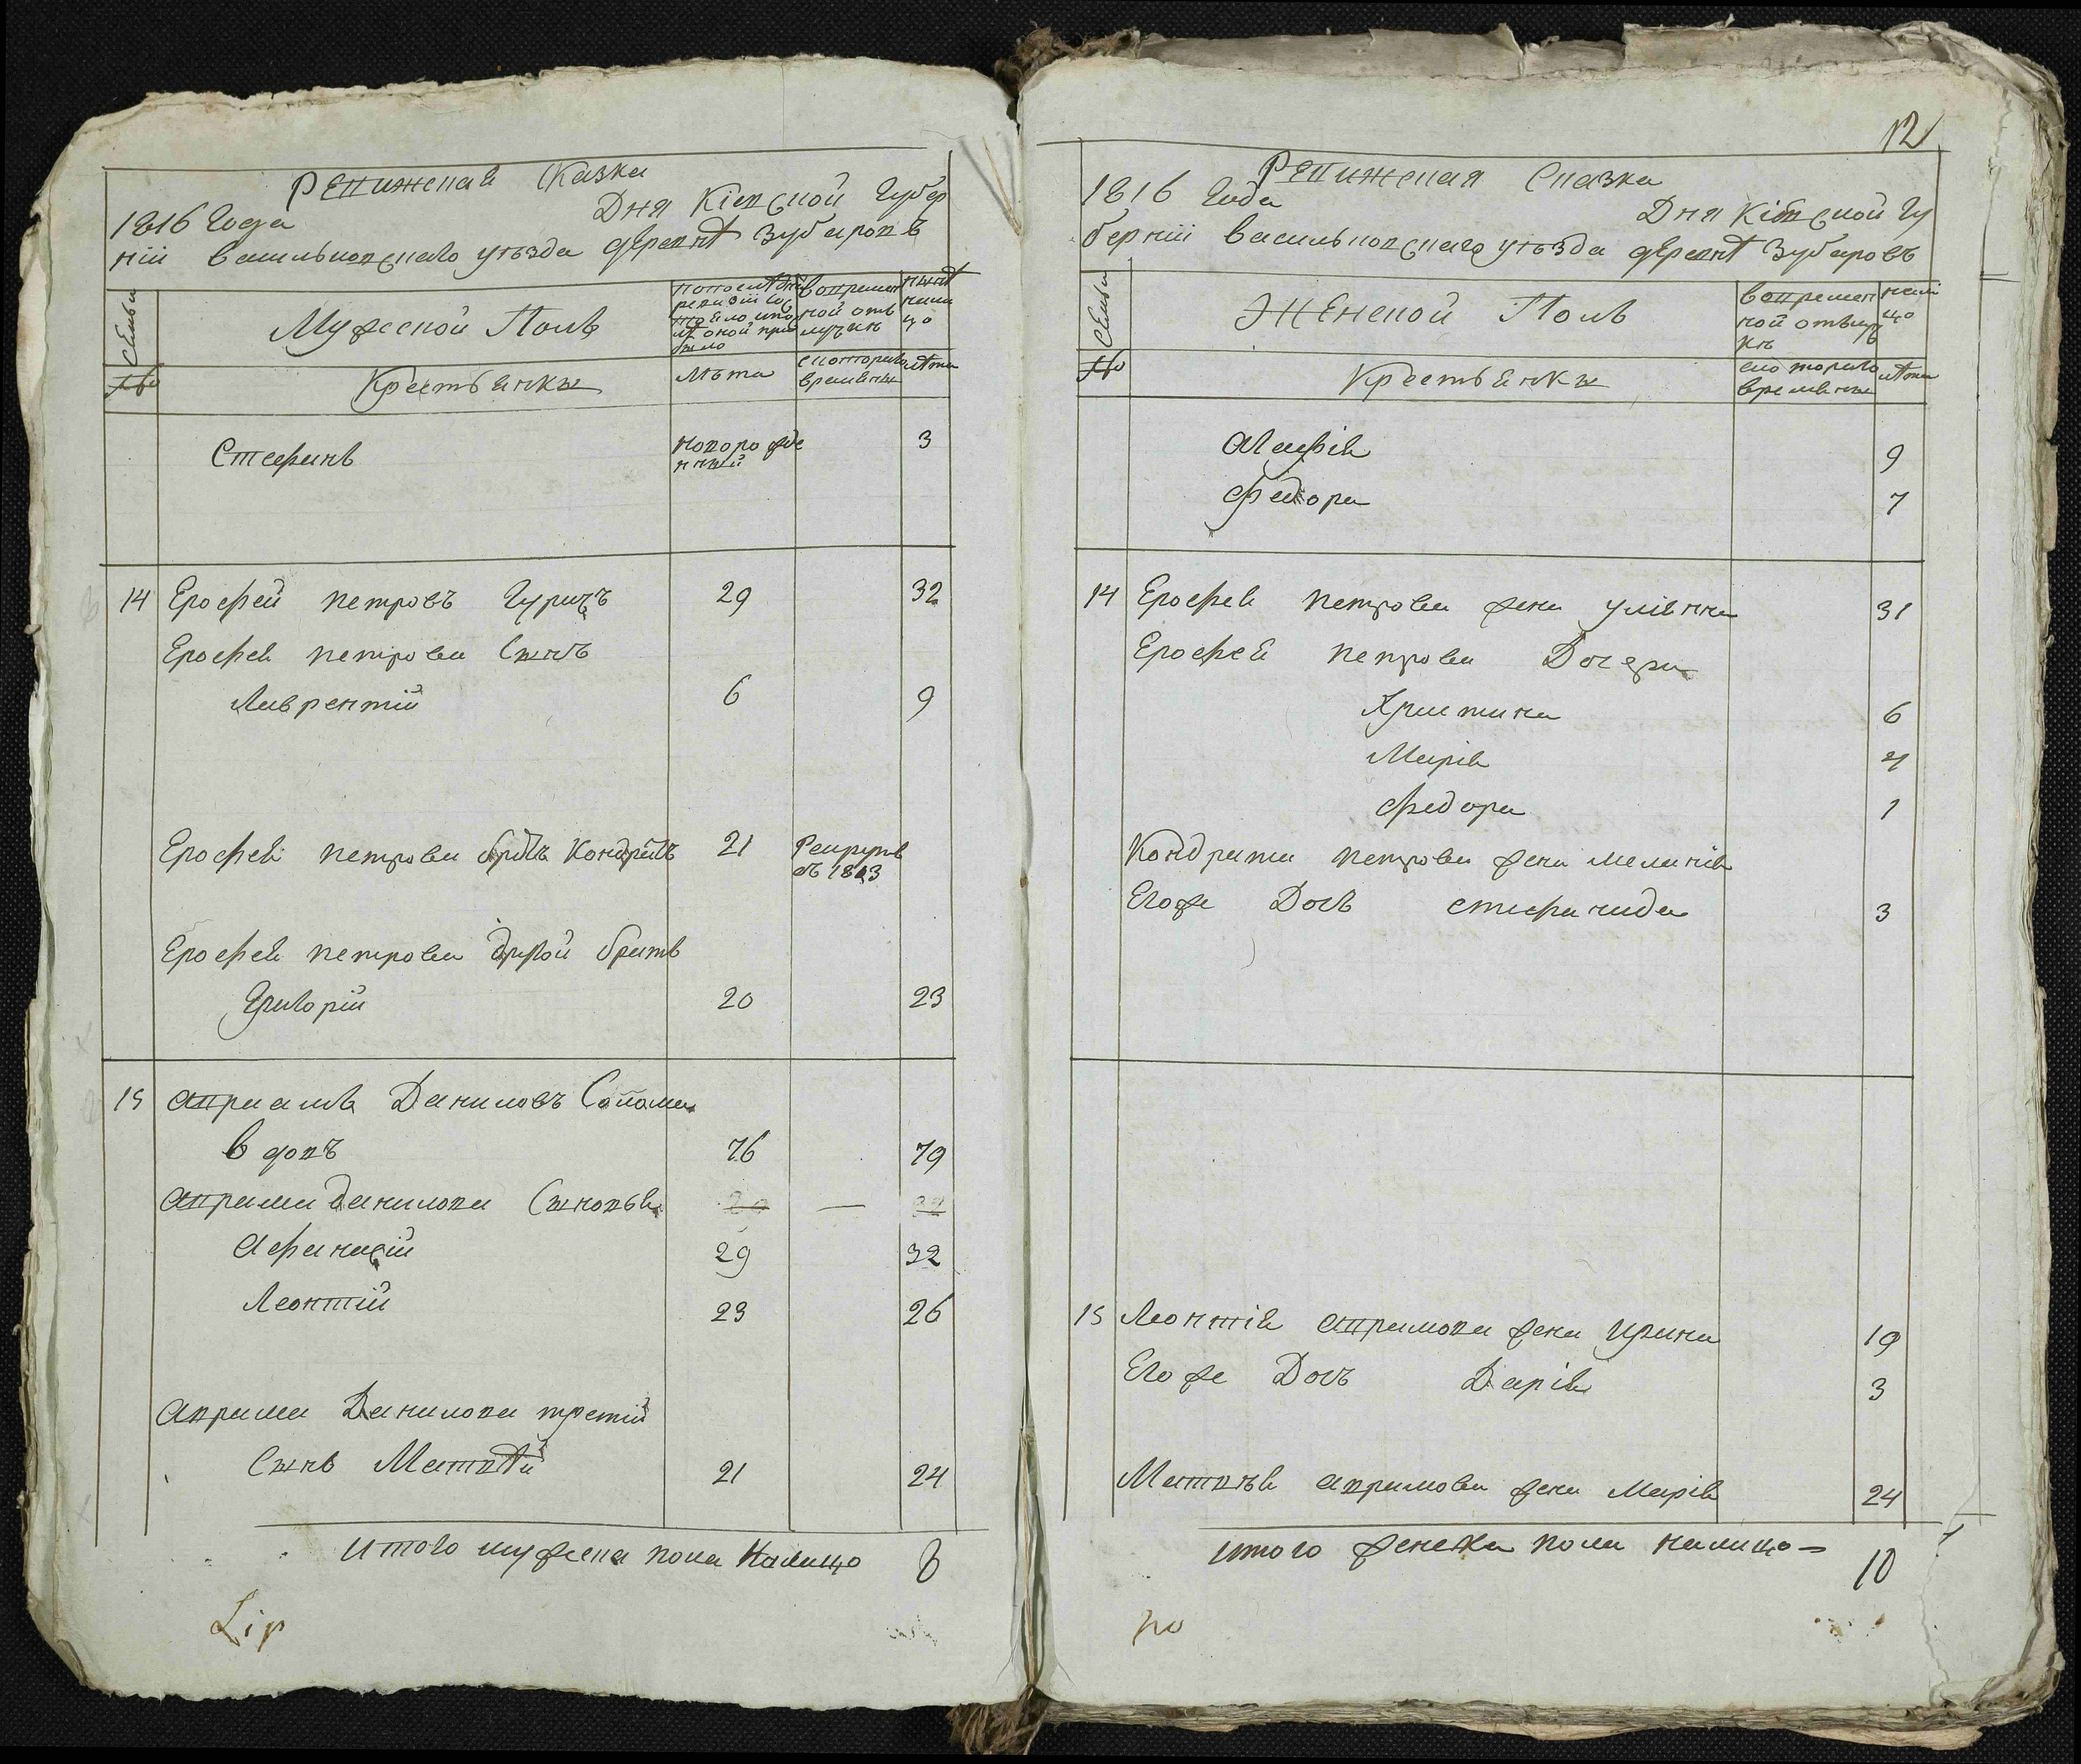 Ревижская Сказка
1816 Года Дня Кіевской Губер
ніи васильковскаго уѣзда деревнѣ Зубаровъ
Семьи
Мужеской Полъ
по последней ревизіи состояло и после оной прибыло
в временной отлучкѣ
нынѣ налицо
№
Крестьянѣ
Лѣта
с котораго времены
лѣта
Стефанъ новорожденный 3
14 Ерофей петровъ Гурицъ 29 32
Ерофея петрова Сынъ
Лаврентій 6 9
Ерофея петрова братъ Кондратъ 21 Рекрутъ въ 1813
Ерофея петрова другой братъ
Григорій 20 23
15 Авраамъ Даниловъ Саломи
вдовъ 76 79
Аврама данилова Сыновья
Афанасій 29 32
Леонтій 23 26
Аврама Данилова третій
Сынъ Матвѣй 21 24
итого мужеска пола Налицо 8
Lip
12
Ревижская Сказка
1816 Года Дня Кіевской Гу
берніи васильковскаго уѣзда деревнѣ Зубаровъ
Семьи
Женской Полъ
во временной отлучкѣ
налицо
№
Крестьянкы
с котораго времены
лѣта
Агафія 9
Федора 7
14 Ерофея петрова жена Уліянна 31
Ерофея петрова Дочери
Христина 6
Марія 4
Федора 1
Кондрата петрова жена меланія
Егоже Дочь стефанида 3
15 Леонтія аврамова жена Ирина 19
Егоже Дочъ Дарія 3
Матвѣя аврамова жена Марія 24
итого женска пола налицо — 10
no